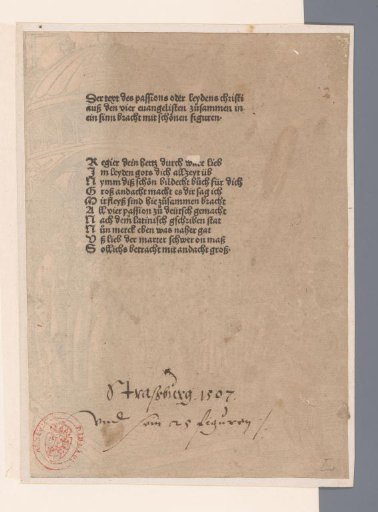 Der text des passions oder leydens christi
auß den vier euangelisten zůsammen in
ein sinn bracht mit schönen figuren·
Regier dein hertz durch ware lieb
Im leyden gots dich allzeyt üb
Nymm diß schön bildecht bůch für dich
Groß andacht macht es dir sag ich
Mit fleyß sind hie zůsammen bracht
All vier passion zů deutsch gemacht
Nach dem latinisch gschriben stat
Nůn merck eben was naher gat
Vß lieb der marter schwer on maß
Sollichs betracht mit andacht groß·
Straßbürg. 1507.
Vnd sein 25 figuren